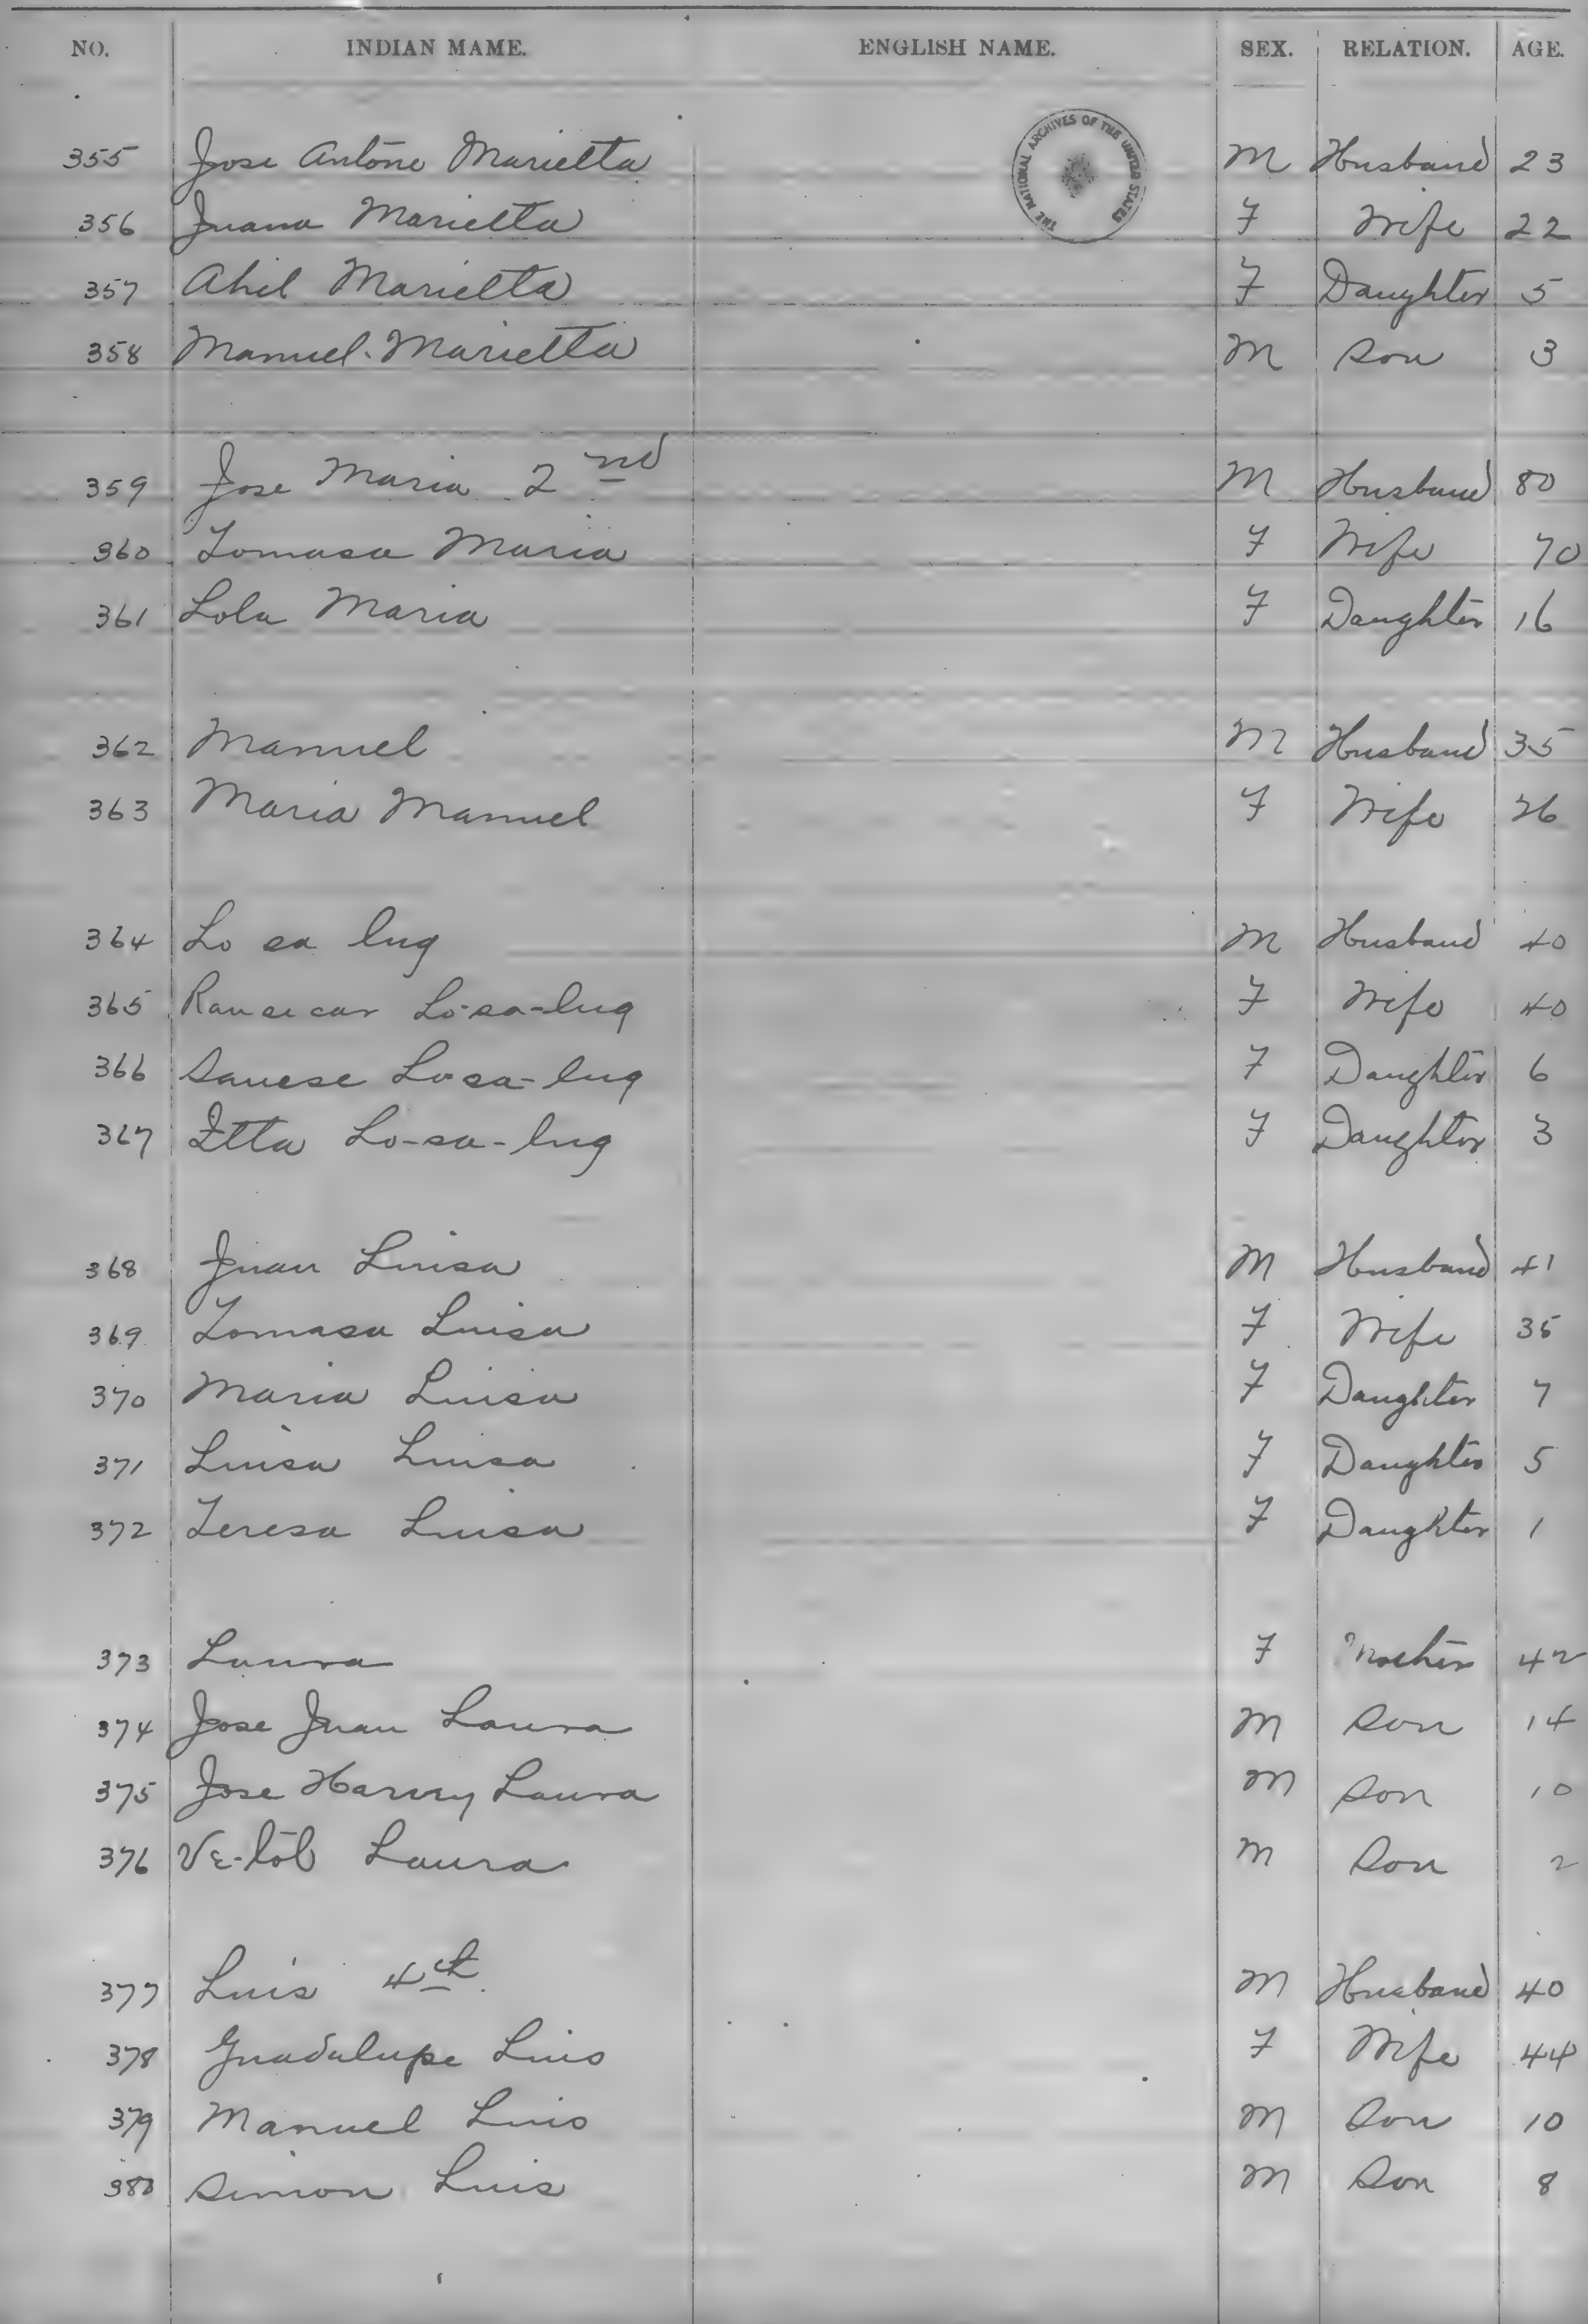 NO. INDIAN MAME. ENGLISH NAME. SEX. RELATION. AGE.
THE NATIONAL ARCHIVES OF THE UNITED STATES
355 Jose Antone Marietta M Husband 23
356 Juana Marietta F Wife 22
357 Ahil Marietta F Daughter 5
358 Manuel Marietta M Son 3
359 Jose Maria 2nd M Husband 80
360 Tomasa Maria F Wife 70
361 Lola Maria F Daughter 16
362 Manuel M Husband 35
363 Maria Manuel F Wife 26
364 Lo sa lug M Husband 40
365 Lo-sa-lug F Wife 40
366 Sanese Lo-sa-lug F Daughter 6
367 Etta Lo-sa-lug F Daughter 3
368 Juan Luisa M Husband 41
369 Tomasa Luisa F Wife 35
370 Maria Luisa F Daughter 7
371 Luisa Luisa F Daughter 5
372 Teresa Luisa F Daughter 1
373 Laura F Mother 42
374 Jose Juan Laura M Son 14
375 Jose Harvey Laura M Son 10
376 Ve-tob Laura M Son 2
377 Luis 4th M Husband 40
378 Guadalupe Luis F Wife 44
379 Manuel Luis M Son 10
380 Simon Luis M Son 8